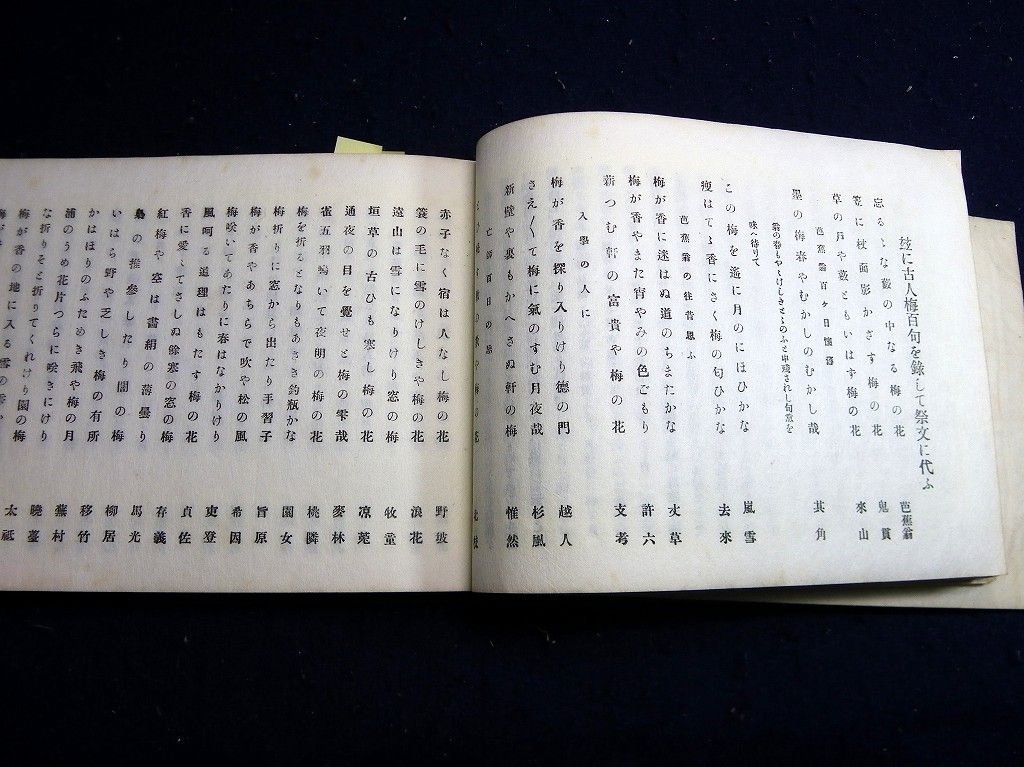 玆に古人梅百句を錄して祭文に代ふ
忘るゝな藪の中なる梅の花 芭蕉翁
笠に杖面影かざす梅の花 鬼貫
草の戸や藪ともいはす梅の花 來山
芭蕉翁百ヶ日懷舊
墨の梅春やむかしのむかし哉 其角
翁の春もやゝけしきとゝのふと申殘されし句意を
味へ侍りて
この梅を遙に月のにほひかな 嵐雪
瘦はてゝ香にさく梅の匂ひかな 去來
芭蕉翁の往昔思ふ
梅が香に迷はぬ道のちまたかな 丈草
梅が香やまた宵やみの色ごもり 許六
薪つむ軒の富貴や梅の花 支考
入學の人に
梅が香を探り入りけり德の門 越人
さえ〲て梅に氣のすむ月夜哉 杉風
新壁や裏もかへさぬ軒の梅 惟然
赤子なく宿は人なし梅の花 野坡
簑の毛に雪のけしきや梅の花 浪花
遠山は雪になりけり窓の梅 牧童
垣草の古ひも寒し梅の花 凉菟
通夜の目を覺せと梅の雫哉 麥林
雀五羽鳴いて夜明の梅の花 桃隣
梅を折るとなりもあさき釣瓶かな 園女
梅折りに窓から出たり手習子 旨原
梅が香やあちらで吹や松の風 希因
梅咲いてあたりに春はなかりけり 吏登
風呵る道理はもたす梅の花 貞佐
香に愛ゝてさしぬ餘寒の窓の梅 存義
紅梅や空は書絹の薄曇り 馬光
梟の推參したり闇の梅 柳居
いはら野や芝しき梅の有所 移竹
かはほりのふためき飛や梅の月 蕪村
浦のうめ花片つらに咲きにけり 曉臺
な折りそと折りてくれけり園の梅 太祇
梅が香の地に入る雪の